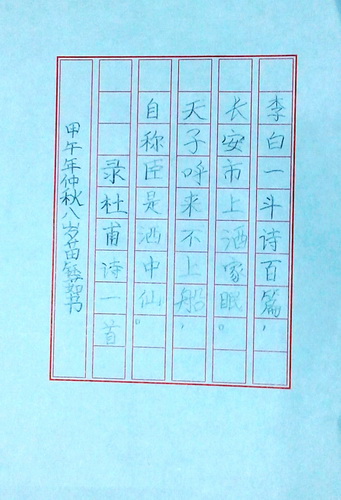 李白一斗诗百篇，
长安市上酒家眠。
天子呼来不上船，
自称臣是酒中仙。
录杜甫诗一首
甲午年仲秋八岁苗艺茹书